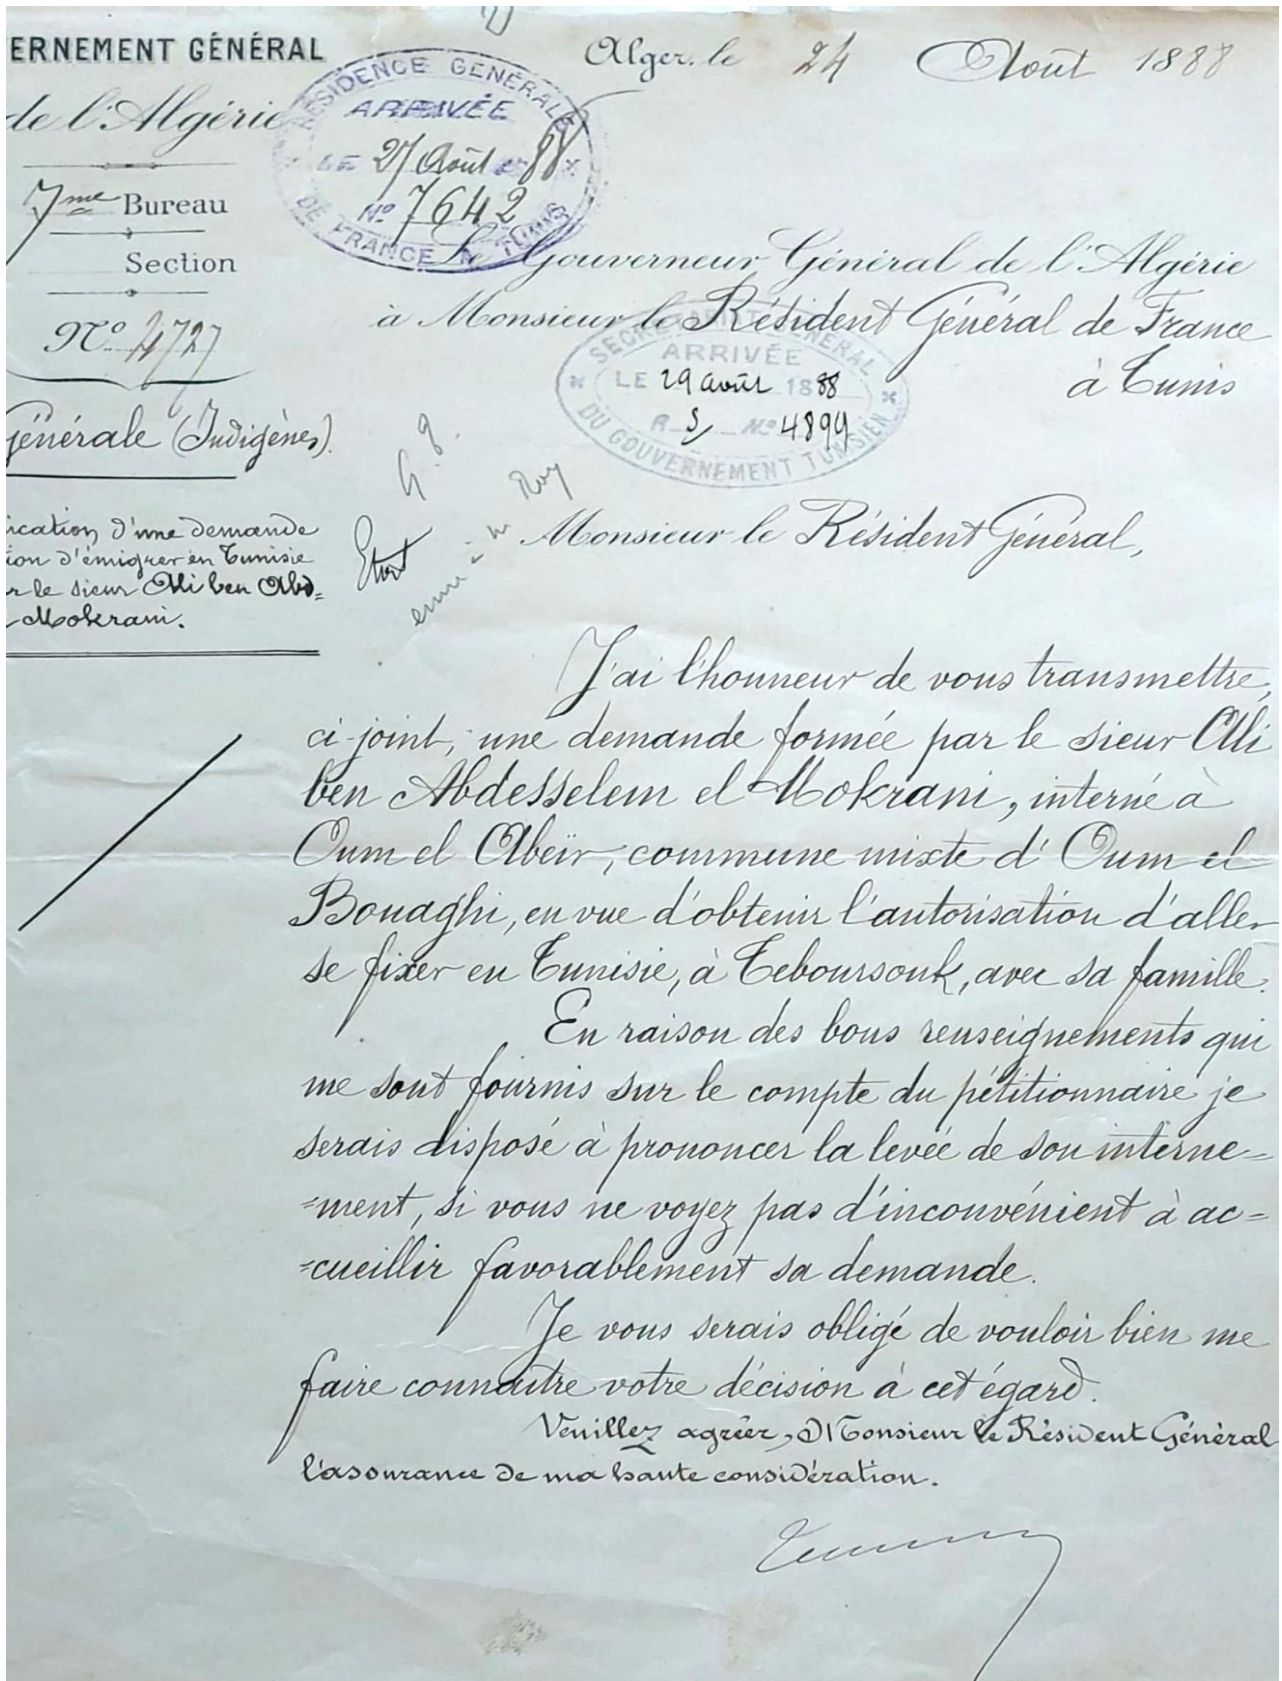 ERNEMENT GÉNÉRAL
de l'Algérie
7me Bureau
Section
No 4727
générale (Indigènes).
ication d'une demande
ion d'émigrer en Tunisie
r le sieur Ali ben Abd=
Mokrani.
Alger, le 24 Août 1888
RÉSIDENCE GÉNÉRALE
ARRIVÉE
LE 27 Août 88
No 7642
DE FRANCE A TUNIS
Le Gouverneur Général de l'Algérie
à Monsieur le Résident Général de France
à Tunis
SECRÉTARIAT GÉNÉRAL
ARRIVÉE
LE 29 août 1888
No 4894
DU GOUVERNEMENT TUNISIEN
Monsieur le Résident Général,
J'ai l'honneur de vous transmettre,
ci-joint, une demande formée par le sieur Ali
ben Abdesselem el Mokrani, interné à
Oum el Abeïr, commune mixte d'Oum el
Bouaghi, en vue d'obtenir l'autorisation d'aller
se fixer en Tunisie, à Teboursouk, avec sa famille.
En raison des bons renseignements qui
me sont fournis sur le compte du pétitionnaire je
serais disposé à prononcer la levée de son interne=
=ment, si vous ne voyez pas d'inconvénient à ac=
=cueillir favorablement sa demande.
Je vous serais obligé de vouloir bien me
faire connaître votre décision à cet égard.
Veuillez agréer, Monsieur le Résident Général
l'assurance de ma haute considération.